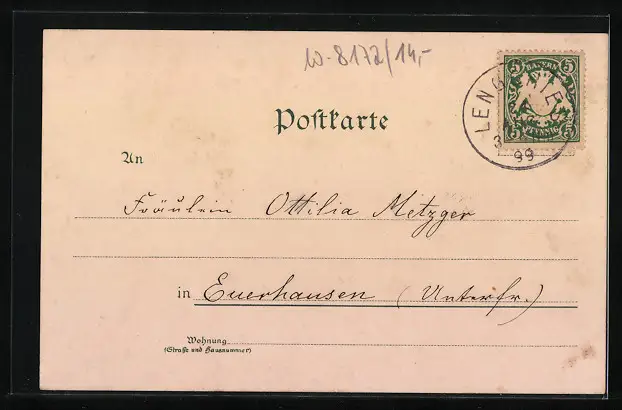 W-8172/14,-
5 BAYERN 5
5 PFENNIG 5
LENG
99
Postkarte
An
Fräulein Ottilia Metzger
in Euerhausen (Unterfr.)
Wohnung
(Straße und Hausnummer)